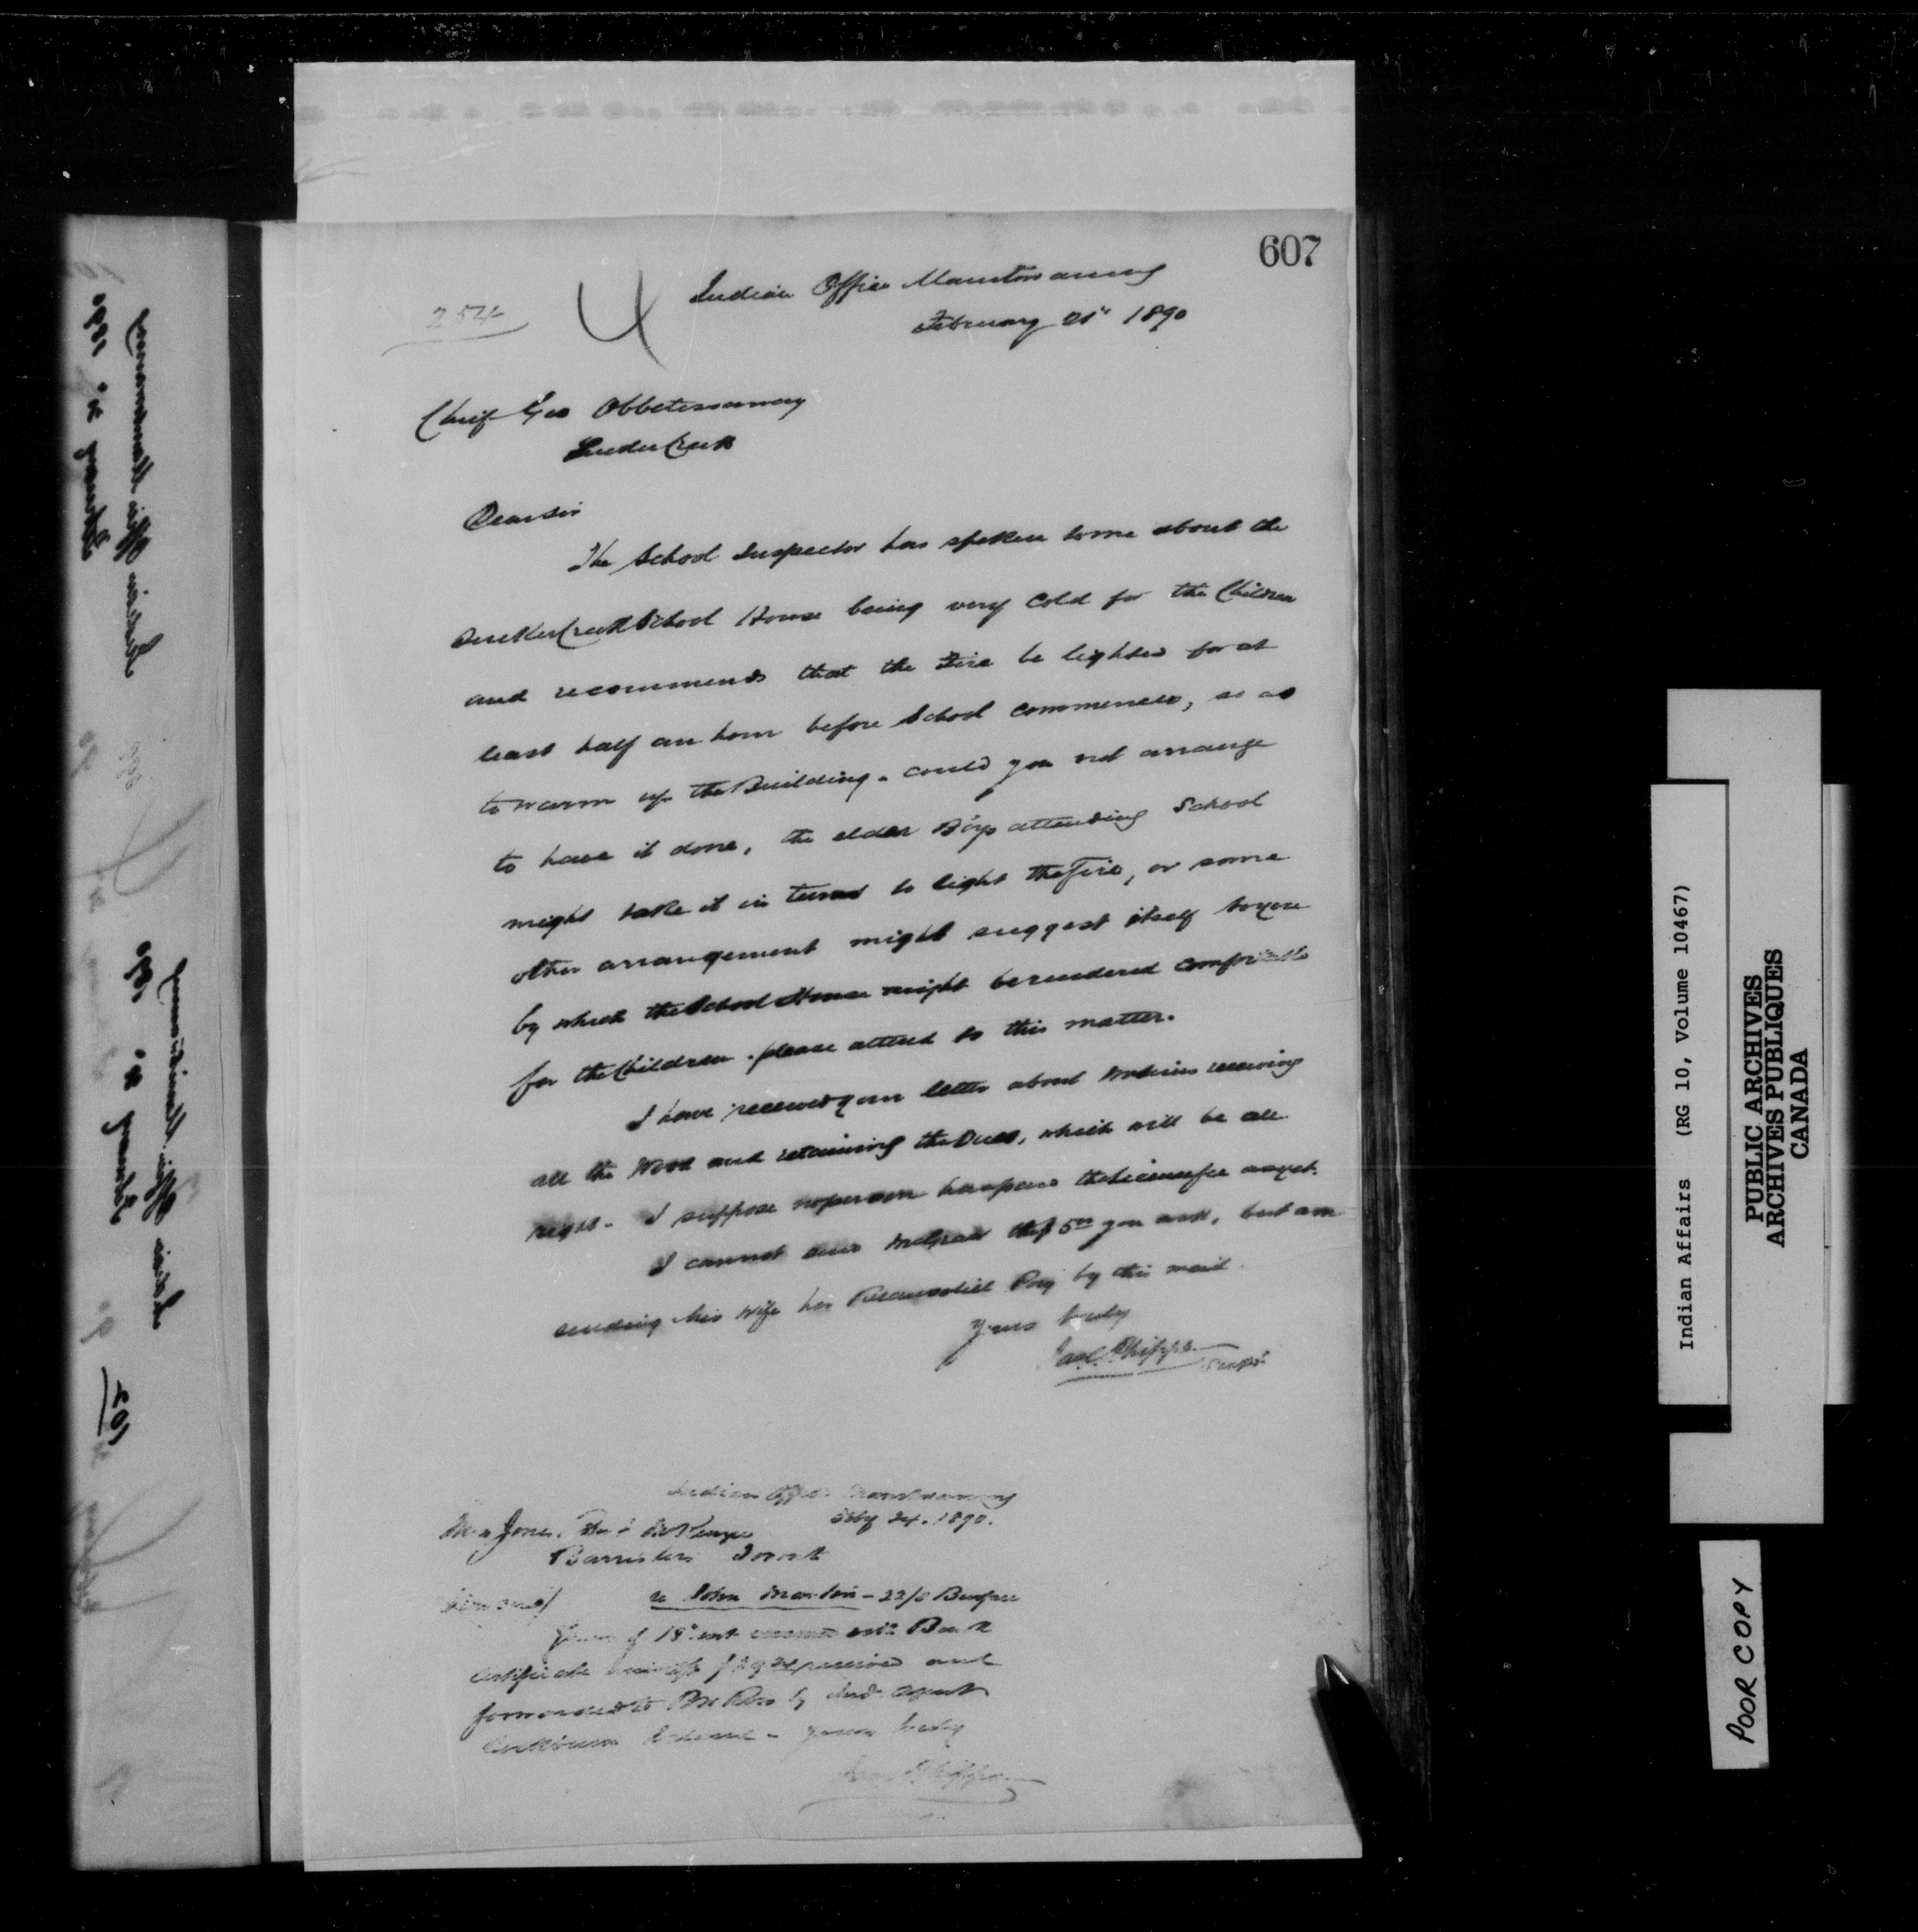 607
254
Indian Office Manitowaning
February 21st 1890
Chief Geo Obbetossoway
Sucker Creek
Dear Sir
The School Inspector has spoken to me about the
Sucker Creek School House being very cold for the Children
and recommends that the Fire be lighted for at
least half an hour before School commences, so as
to warm up the Building. could you not arrange
to have it done, the elder Boys attending School
might take it in turns to light the Fire, or some
other arrangement might suggest itself to you
by which the School House might be rendered comfortable
for the Children. please attend to this matter.
I have received your letter about receiving
all the Wood and retaining the Dues, which will be all
right. I suppose no person has paid the License fee as yet.
I cannot send the $5 you ask, but am
sending his Wife her Pay by this mail.
Yours truly
Jas. C. Phipps
Supt
Indian Office Manitowaning
Feby 24. 1890.
Jones,
Barristers
re John Martin - 22/8 Burpee
18th with Bank
Certificate received and
forwarded to by Ind. Agent
Cockburn Island - Yours truly
Phipps
Indian Affairs (RG 10, Volume 10467)
PUBLIC ARCHIVES
ARCHIVES PUBLIQUES
CANADA
POOR COPY